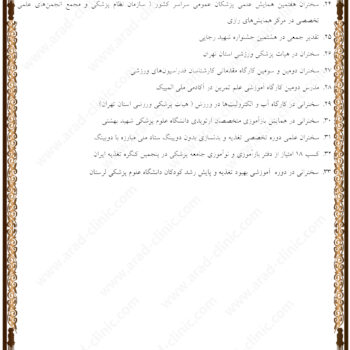 ۲۴. سخنران هفتمین همایش علمی پزشکان عمومی سراسر کشور ( سازمان نظام پزشکی و مجمع انجمن‌های علمی
تخصصی در مرکز همایش‌های رازی
۲۵. تقدیر جمعی در هشتمین جشنواره شهید رجایی
۲۶. سخنران در هیات پزشکی ورزشی استان تهران
۲۷. سخنران دومین و سومین کارگاه مقدماتی کارشناسان فدراسیون‌های ورزشی
۲۸. مدرس دومین کارگاه آموزشی علم تمرین در آکادمی ملی المپیک
۲۹. سخنرانی در کارگاه آب و الکترولیت‌ها در ورزش ( هیات پزشکی ورزشی استان تهران)
۳۰. سخنرانی در همایش بازآموزی متخصصان ارتوپدی دانشگاه علوم پزشکی شهید بهشتی
۳۱. سخنران علمی دوره تخصصی تغذیه و بدنسازی بدون دوپینگ ستاد ملی مبارزه با دوپینگ
۳۲. کسب ۱۸ امتیاز از دفتر بازآموزی و نوآموزی جامعه پزشکی در پنجمین کنگره تغذیه ایران
۳۳. سخنرانی در دوره آموزشی بهبود تغذیه و پایش رشد کودکان دانشگاه علوم پزشکی لرستان
www.arad-clinic.com